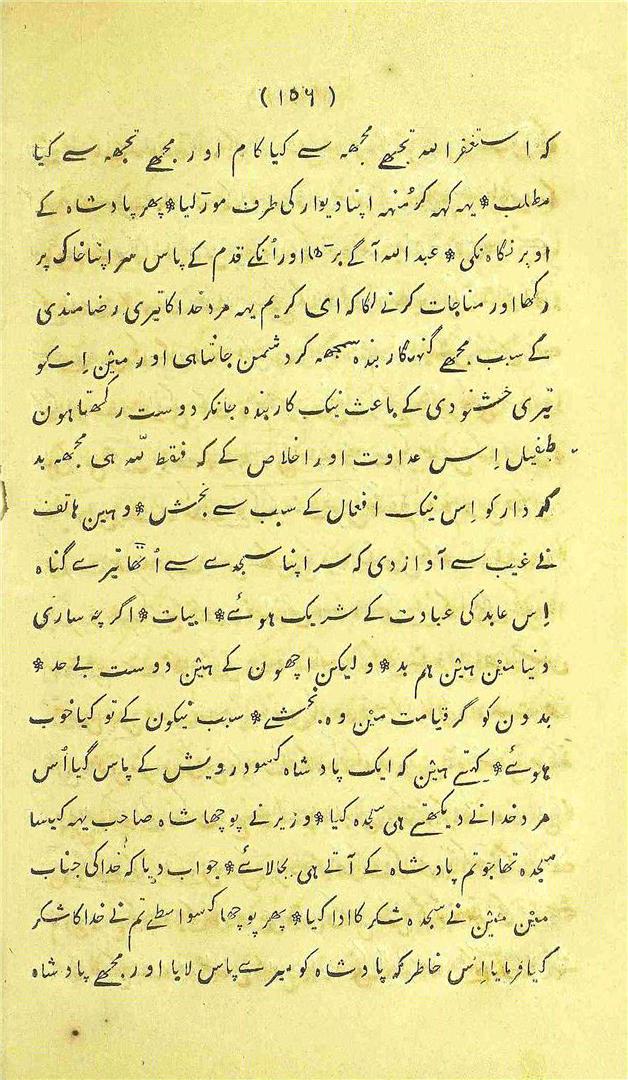 (۱۵۶)
کہ استغفرالله تجھے مجھہ سے کیا کام اور مجھے تجھہ سے کیا
مطلب * یہہ کہہ کر مُنہہ اپنا دیوار کی طرف موڑ لیا * پھر پادشاہ کے
اوپر نگاہ نکی * عبد الله آگے بڑھا اور اُنکے قدم کے پاس سر اپنا خاک پر
رکھا اور مناجات کرنے لگا کہ ای کریم یہہ مرد خدا کا تیری رضامندی
کے سبب مجھے گنہگار بندہ سمجھہ کر دشمن جانتا ہی اور میْن اِسکو
تیری خشنودی کے باعث نیک کار بندہ جانکر دوست رکھتا ہون
بطفیل اِس عداوت اور اخلاص کے کہ فقط لله ہی مجھہ بد
کردار کو اِس نیک افعال کے سبب سے بخش * وہین ہاتف
نے غیب سے آواز دی کہ سر اپنا سجدے سے اُٹھا تیرے گناہ
اِس عابد کی عبادت کے شریک ہوئے * ابیات * اگرچہ ساری
دنیا میْن ہیْن ہم بد * ولیکن اچھون کے ہیْن دوست بے حد *
بدون کو گر قیامت میْن وہ بخشے * سبب نیکون کے تو کیا خوب
ہوئے * کہتے ہیْن کہ ایک پادشاہ کسو درویش کے پاس گیا اُس
مرد خدا نے دیکھتے ہی سجدہ کیا * وزیر نے پوچھا شاہ صاحب یہہ کیسا
سجدہ تھا جو تم پادشاہ کے آتے ہی بجا لائے * جواب دیا کہ خدا کی جناب
میْن میْن نے سجدہ شکر کا ادا کیا * پھر پوچھا کسواسطے تم نے خدا کا شکر
کیا فرمایا اِس خاطر کہ پادشاہ کو میرے پاس لایا اور مجھے پادشاہ